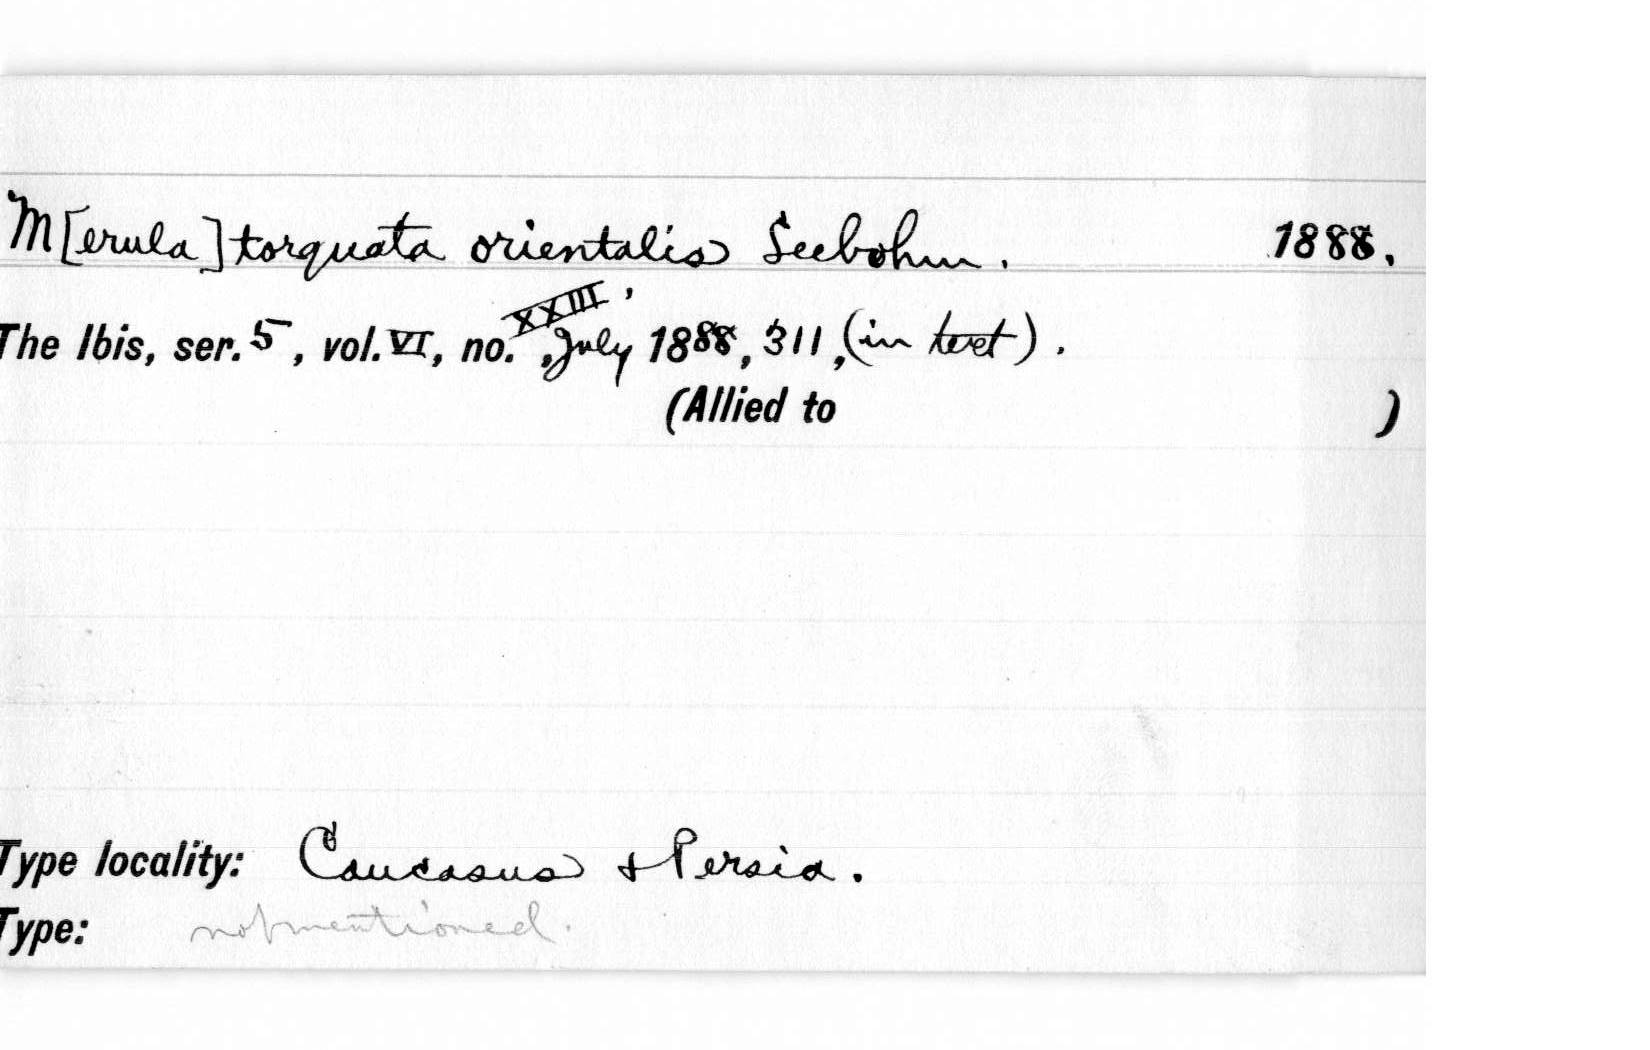 M[erula] torquata orientalis Seebohm. 1888.
The Ibis, ser. 5, vol. VI, no. XXIII, July 1888, 311, (in text).
(Allied to )
Type locality: Caucasus + Persia.
Type: not mentioned.